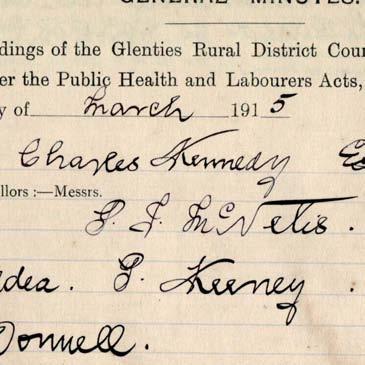 GENERAL MINUTES.
dings of the Glenties Rural District Coun
er the Public Health and Labourers Acts,
y of March 1915
Charles Kennedy Es
llors :—Messrs.
P. J. McNelis.
dea. P. Keeney.
Donnell.